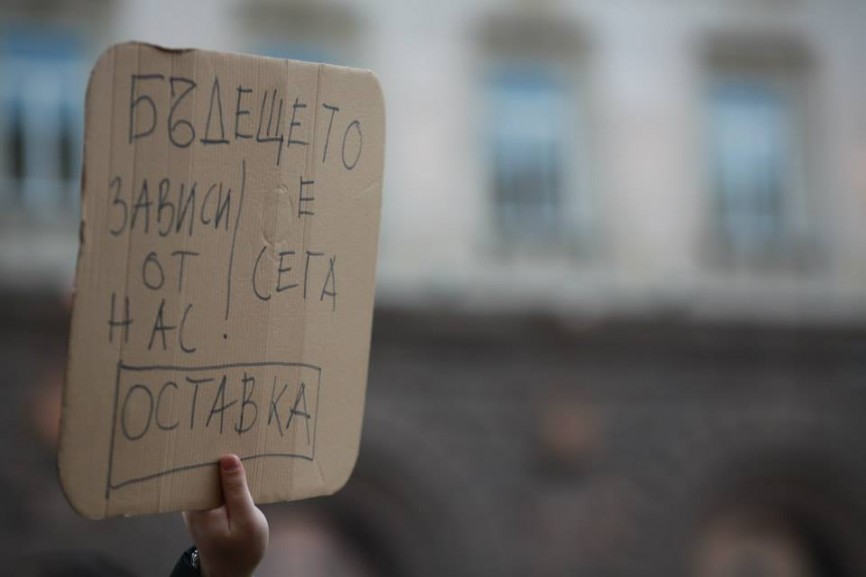 БЪДЕЩЕТО
ЗАВИСИ
ОТ
НАС!
Е
СЕГА
ОСТАВКА